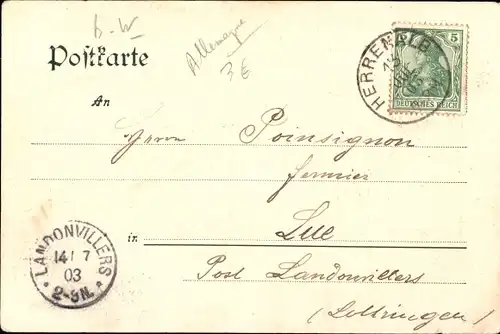 b-W
Allemagne
3€
Postkarte
5
DEUTSCHES REICH
HERRENALB
An
Herrn Poinsignon
fermier
in Lue
Post Landonvillers
(Lothringen)
LANDONVILLERS
14/7
03
2-3N.